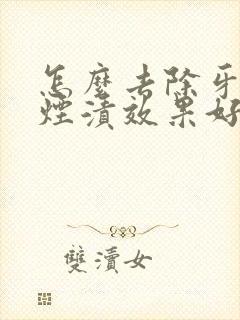 怎麼去除牙
煙漬效果好
雙瀆女